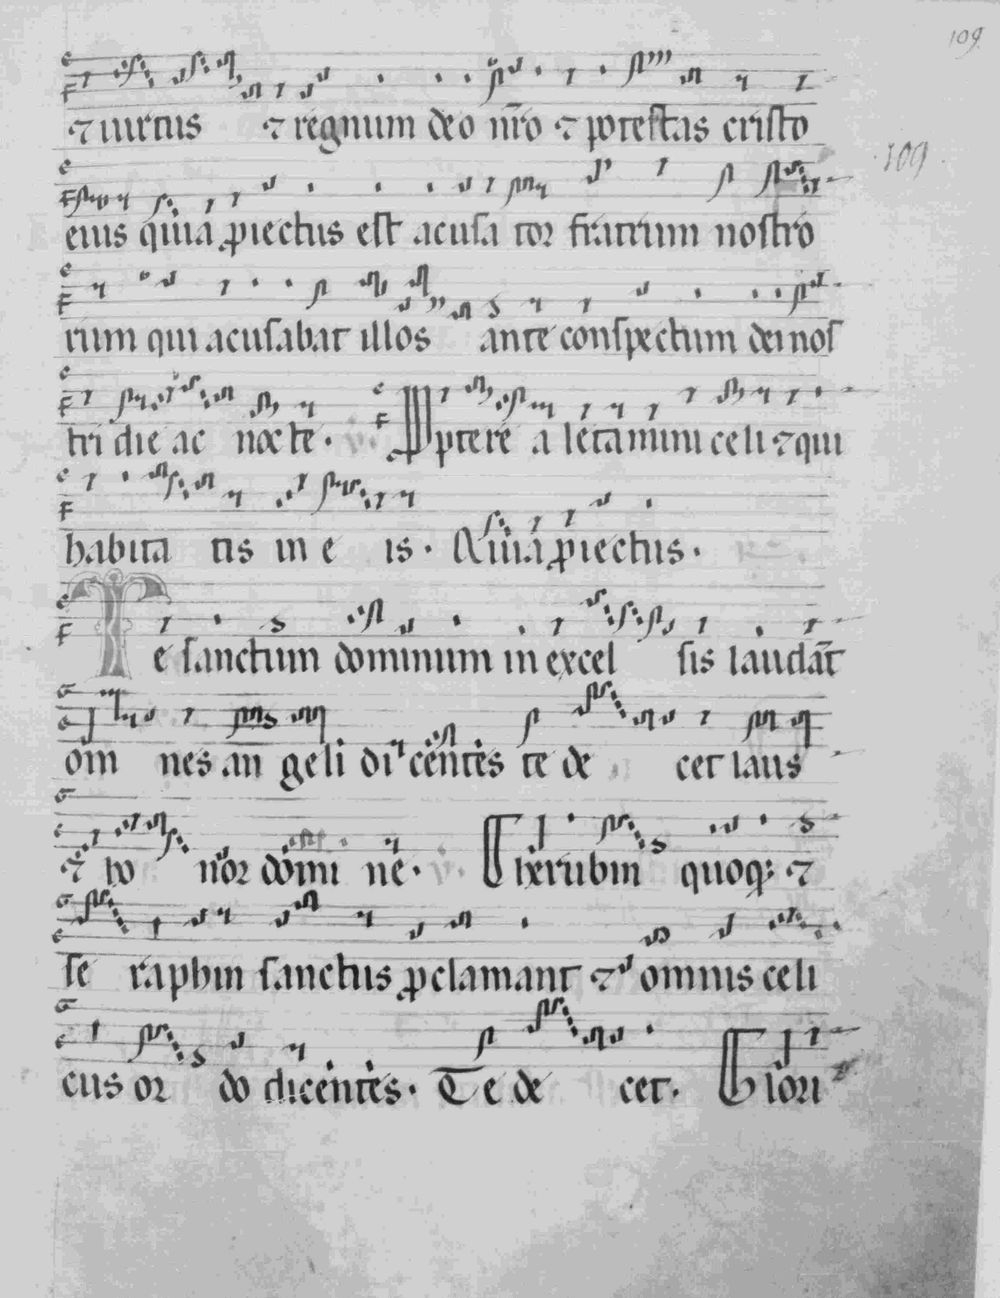 109
⁊ uirtus ⁊ regnum deo nr̄o ⁊ potestas cristo
109
eius quia ꝓiectus est acusa tor fratrum nostro
rum qui acusabat illos ante conspectum dei nos
tri die ac nocte. Propterea letamini celi ⁊ qui
habita tis in e is. Quia ꝓiectus.
Te sanctum dominum in excel sis laudāt
om̄ nes an geli dicentes te de cet laus
⁊ ho nor domi ne. v. Cherubin quoqꝫ ⁊
se raphin sanctus ꝓclamant ⁊ omnis celi
cus or do dicentes. Te de cet. Glori